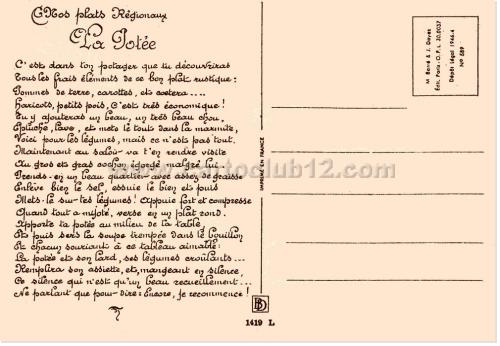 Nos plats Régionaux
La Potée
C'est dans ton potager que tu découvriras
Tous les frais éléments de ce bon plat rustique :
Pommes de terre, carottes, et cœtera....
Haricots, petits pois, C'est très économique !
Tu y ajouteras un beau, un très beau chou,
Epluche, lave, et mets le tout dans la marmite,
Voici pour les légumes, mais ce n'est pas tout.
Maintenant au saloir va t'en rendre visite
Au gros et gras cochon égorgé malgré lui.
Prends-en un beau quartier avec assez de graisse
Enlève bien le sel, essuie le bien et puis
Mets-le sur tes légumes ! Appuie fort et compresse
Quand tout a mijoté, verse en un plat rond.
Apporte ta potée au milieu de la table,
Et puis sers la soupe trempée dans le bouillon
Et chacun souriant à ce tableau aimable
La potée et son lard, ses légumes croulants...
Remplira son assiette, et, mangeant en silence,
Ce silence qui n'est qu'un beau recueillement...
Ne parlant que pour dire : Encore, je recommence !
IMPRIMÉ EN FRANCE
M. Barré & J. Dayez
Édit. Paris - O.P.L. 30.0037
Dépôt légal 1946.4
N° 689
BD
1419 L
www.cartoclub12.com